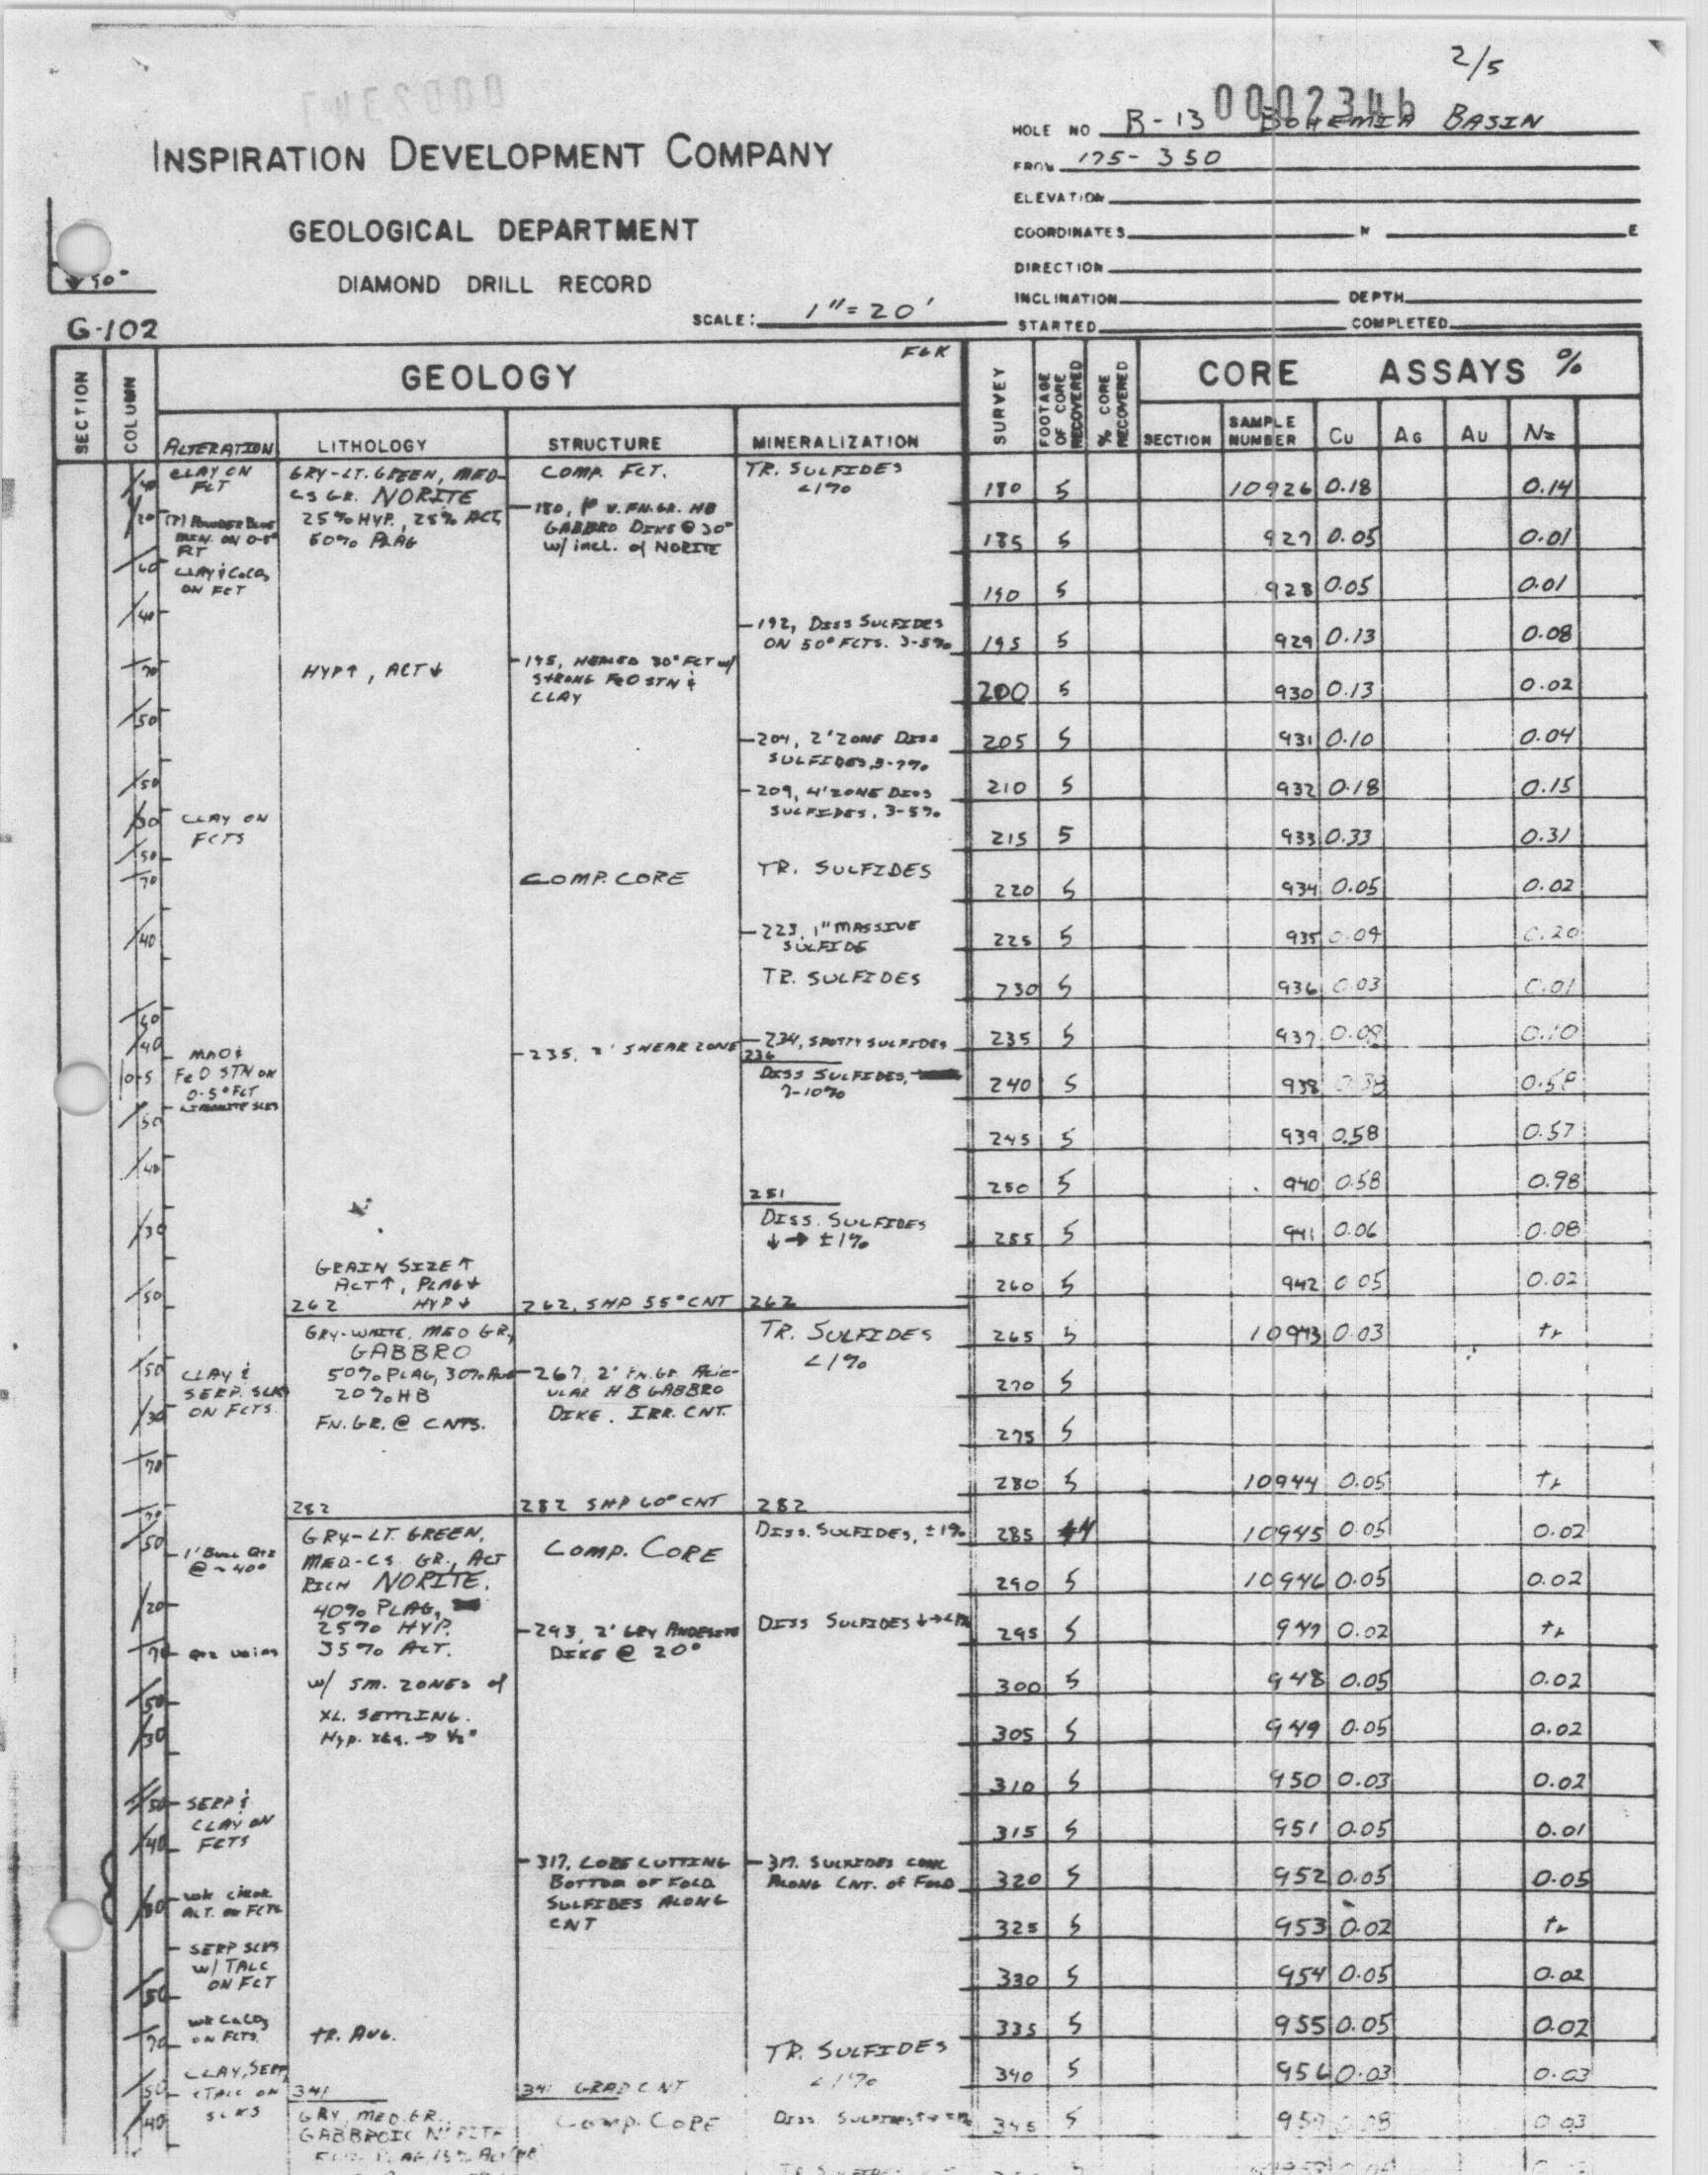 2/5
0002346
HOLE NO B-13 BOHEMIA BASIN
INSPIRATION DEVELOPMENT COMPANY
FROM 175-350
ELEVATION
GEOLOGICAL DEPARTMENT
COORDINATES N E
DIRECTION
DIAMOND DRILL RECORD
INCLINATION DEPTH
SCALE: 1"=20'
STARTED COMPLETED
G-102
SECTION
COLUMN
GEOLOGY
SURVEY
FOOTAGE OF CORE RECOVERED
% CORE RECOVERED
CORE ASSAYS %
ALTERATION LITHOLOGY STRUCTURE MINERALIZATION SECTION SAMPLE NUMBER Cu AG AU Ni
CLAY ON
FCT
CLAY & CaCO3
ON FCT
CLAY ON
FCTS
FeO STN ON
0-5° FCT
CLAY &
SERP. SLKS
ON FCTS
1' BULL QTZ
@ ~40°
QTZ VEINS
SERP &
CLAY ON
FCTS
SERP SLKS
W/ TALC
ON FCT
WK CaCO3
ON FCTS.
CLAY, SERP,
& TALC ON
SLKS
GRY-LT. GREEN, MED-
CS GR. NORITE
25% HYP., 25% ACT,
50% PLAG
HYP↑, ACT↓
GRAIN SIZE↑
ACT↑, PLAG↓
262 HYP↓
GRY-WHITE, MED GR,
GABBRO
50% PLAG, 30% AUG
20% HB
FN. GR. @ CNTS.
282
GRY-LT. GREEN,
MED-CS GR., ACT
RICH NORITE.
40% PLAG,
25% HYP.
35% ACT.
w/ SM. ZONES of
XL. SETTLING.
HYP. XLS. → 1/2"
TR. AUG.
341
GRY, MED. GR.
GABBROIC NORITE
COMP. FCT.
-180, 1' V. FN. GR. HB
GABBRO DIKE @ 30°
w/ incl. of NORITE
-195, HEALED 30° FCT w/
STRONG FeO STN &
CLAY
COMP. CORE
-235, 2' SHEAR ZONE
262, SHP 55° CNT
-267, 2' FN. GR. ACIC-
ULAR HB GABBRO
DIKE. IRR. CNT.
282 SHP 60° CNT
COMP. CORE
-293, 2' GRY ANDESITE
DIKE @ 20°
-317, CORE CUTTING
BOTTOM OF FOLD
SULFIDES ALONG
CNT
341 GRAD CNT
COMP. CORE
TR. SULFIDES
<1%
-192, DISS SULFIDES
ON 50° FCTS. 3-5%
-204, 2' ZONE DISS
SULFIDES, 5-7%
-209, 4' ZONE DISS
SULFIDES, 3-5%
TR. SULFIDES
-223, 1" MASSIVE
SULFIDE
TR. SULFIDES
-234, SPOTTY SULFIDES
236
DISS SULFIDES,
7-10%
251
DISS. SULFIDES
↓→ ±1%
262
TR. SULFIDES
<1%
282
DISS. SULFIDES, ±1%
DISS SULFIDES ↓→<1%
-317. SULFIDES CONC
ALONG CNT. OF FOLD
TR. SULFIDES
<1%
180 5 10926 0.18 0.14
185 5 927 0.05 0.01
190 5 928 0.05 0.01
195 5 929 0.13 0.08
200 5 930 0.13 0.02
205 5 931 0.10 0.04
210 5 932 0.18 0.15
215 5 933 0.33 0.31
220 5 934 0.05 0.02
225 5 935 0.09 0.20
230 5 936 0.03 0.01
235 5 937 0.08 0.10
240 5 938 0.38
245 5 939 0.58 0.57
250 5 940 0.58 0.98
255 5 941 0.06 0.08
260 5 942 0.05 0.02
265 5 10943 0.03 tr
270 5
275 5
280 5 10944 0.05 tr
285 4 10945 0.05 0.02
290 5 10946 0.05 0.02
295 5 947 0.02 tr
300 5 948 0.05 0.02
305 5 949 0.05 0.02
310 5 950 0.03 0.02
315 5 951 0.05 0.01
320 5 952 0.05 0.05
325 5 953 0.02 tr
330 5 954 0.05 0.02
335 5 955 0.05 0.02
340 5 956 0.03 0.03
345 5 957 0.08 0.03